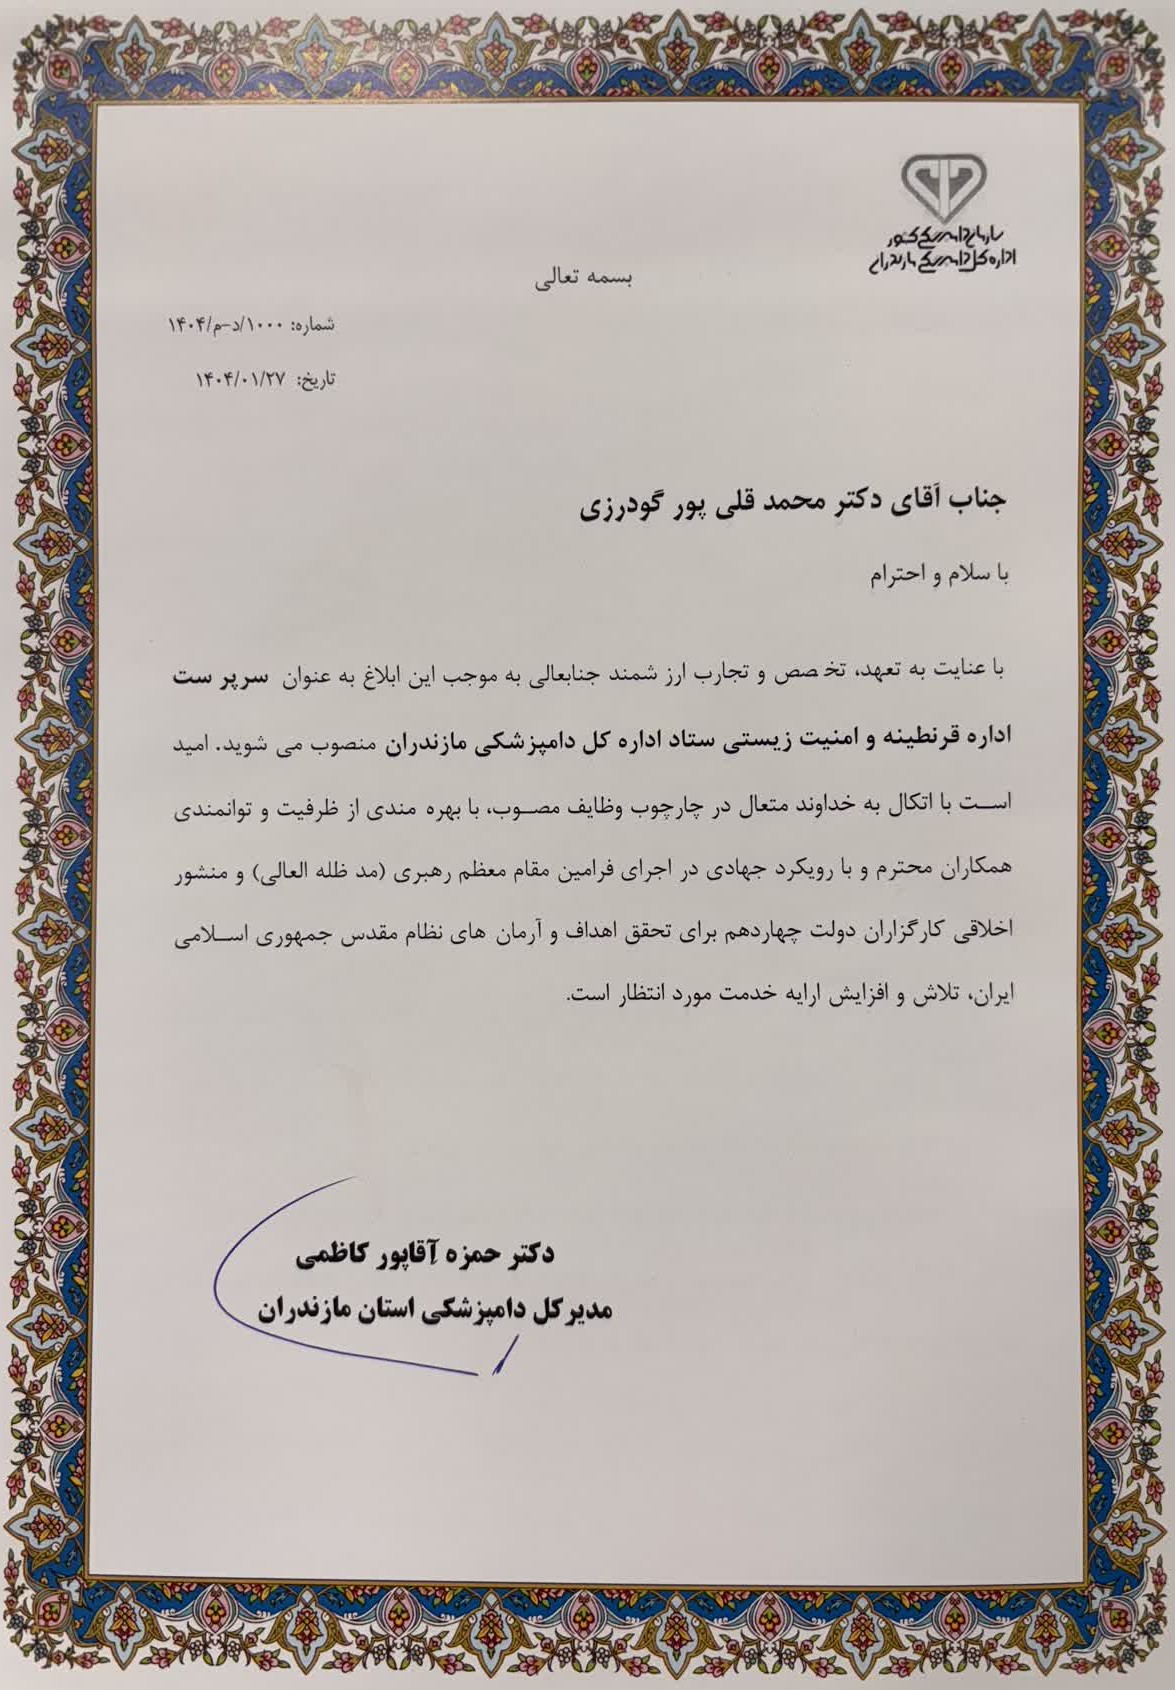 سازمان دامپزشکی کشور
اداره کل دامپزشکی مازندران
بسمه تعالی
شماره: ۱۰۰۰/د-م/۱۴۰۴
تاریخ: ۱۴۰۴/۰۱/۲۷
جناب آقای دکتر محمد قلی پور گودرزی
با سلام و احترام
با عنایت به تعهد، تخصص و تجارب ارزشمند جنابعالی به موجب این ابلاغ به عنوان سرپرست
اداره قرنطینه و امنیت زیستی ستاد اداره کل دامپزشکی مازندران منصوب می شوید. امید
است با اتکال به خداوند متعال در چارچوب وظایف مصوب، با بهره مندی از ظرفیت و توانمندی
همکاران محترم و با رویکرد جهادی در اجرای فرامین مقام معظم رهبری (مد ظله العالی) و منشور
اخلاقی کارگزاران دولت چهاردهم برای تحقق اهداف و آرمان های نظام مقدس جمهوری اسلامی
ایران، تلاش و افزایش ارایه خدمت مورد انتظار است.
دکتر حمزه آقاپور کاظمی
مدیرکل دامپزشکی استان مازندران